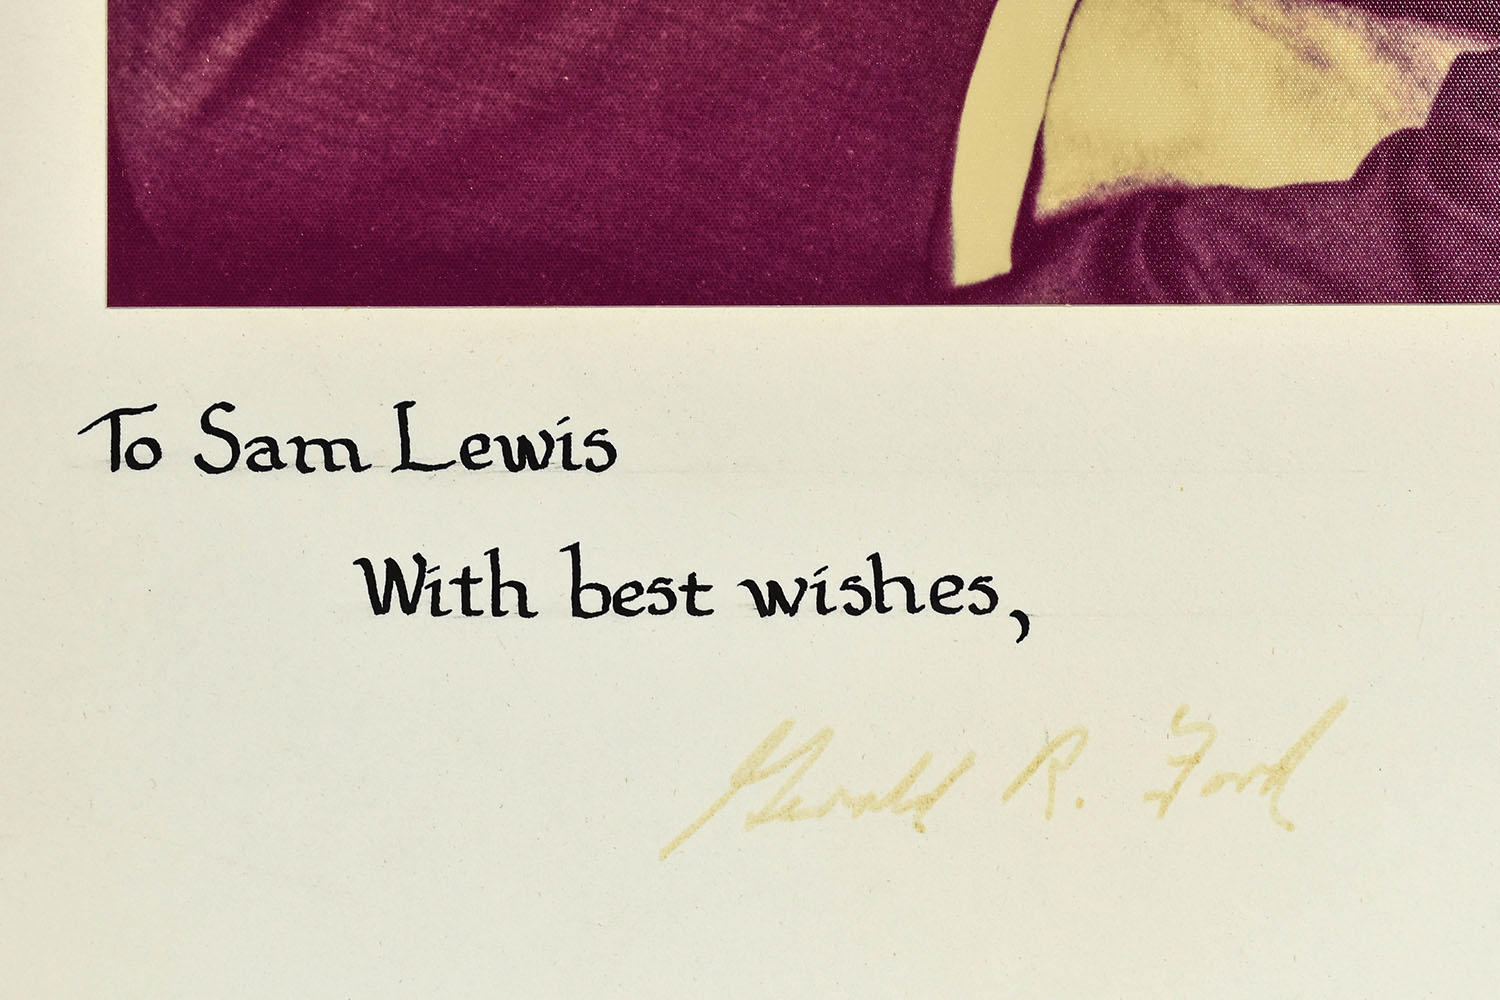 To Sam Lewis
With best wishes,
Gerald R. Ford